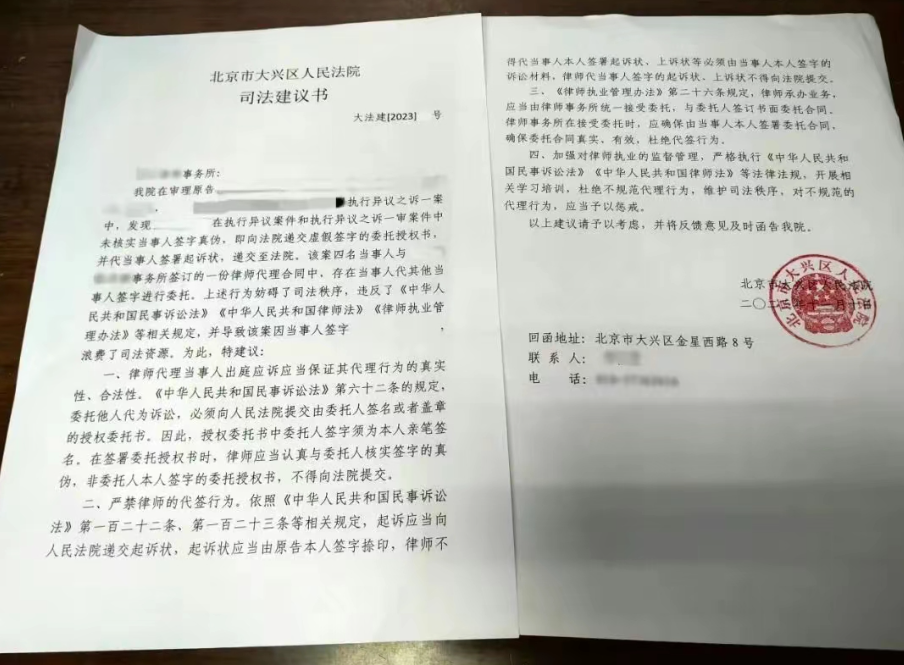 北京市大兴区人民法院
司法建议书
大法建[2023] 号
事务所：
我院在审理原告
执行异议之诉一案
中，发现 在执行异议案件和执行异议之诉一审案件中
未核实当事人签字真伪，即向法院递交虚假签字的委托授权书，
并代当事人签署起诉状，递交至法院。该案四名当事人与
事务所签订的一份律师代理合同中，存在当事人代其他当
事人签字进行委托。上述行为妨碍了司法秩序，违反了《中华人
民共和国民事诉讼法》《中华人民共和国律师法》《律师执业管
理办法》等相关规定，并导致该案因当事人签字 ，
浪费了司法资源。为此，特建议：
一、律师代理当事人出庭应诉应当保证其代理行为的真实
性、合法性。《中华人民共和国民事诉讼法》第六十二条的规定，
委托他人代为诉讼，必须向人民法院提交由委托人签名或者盖章
的授权委托书。因此，授权委托书中委托人签字须为本人亲笔签
名。在签署委托授权书时，律师应当认真与委托人核实签字的真
伪，非委托人本人签字的委托授权书，不得向法院提交。
二、严禁律师的代签行为。依照《中华人民共和国民事诉讼
法》第一百二十二条、第一百二十三条等相关规定，起诉应当向
人民法院递交起诉状，起诉状应当由原告本人签字捺印，律师不
得代当事人本人签署起诉状、上诉状等必须由当事人本人签字的
诉讼材料，律师代当事人签字的起诉状、上诉状不得向法院提交。
三、《律师执业管理办法》第二十六条规定，律师承办业务，
应当由律师事务所统一接受委托，与委托人签订书面委托合同。
律师事务所在接受委托时，应确保由当事人本人签署委托合同，
确保委托合同真实、有效，杜绝代签行为。
四、加强对律师执业的监督管理，严格执行《中华人民共和
国民事诉讼法》《中华人民共和国律师法》等法律法规，开展相
关学习培训，杜绝不规范代理行为，维护司法秩序，对不规范的
代理行为，应当予以惩戒。
以上建议请予以考虑，并将反馈意见及时函告我院。
北京市大兴区人民法院
二〇二 年十 月十 日
回函地址：北京市大兴区金星西路8号
联 系 人：
电 话：